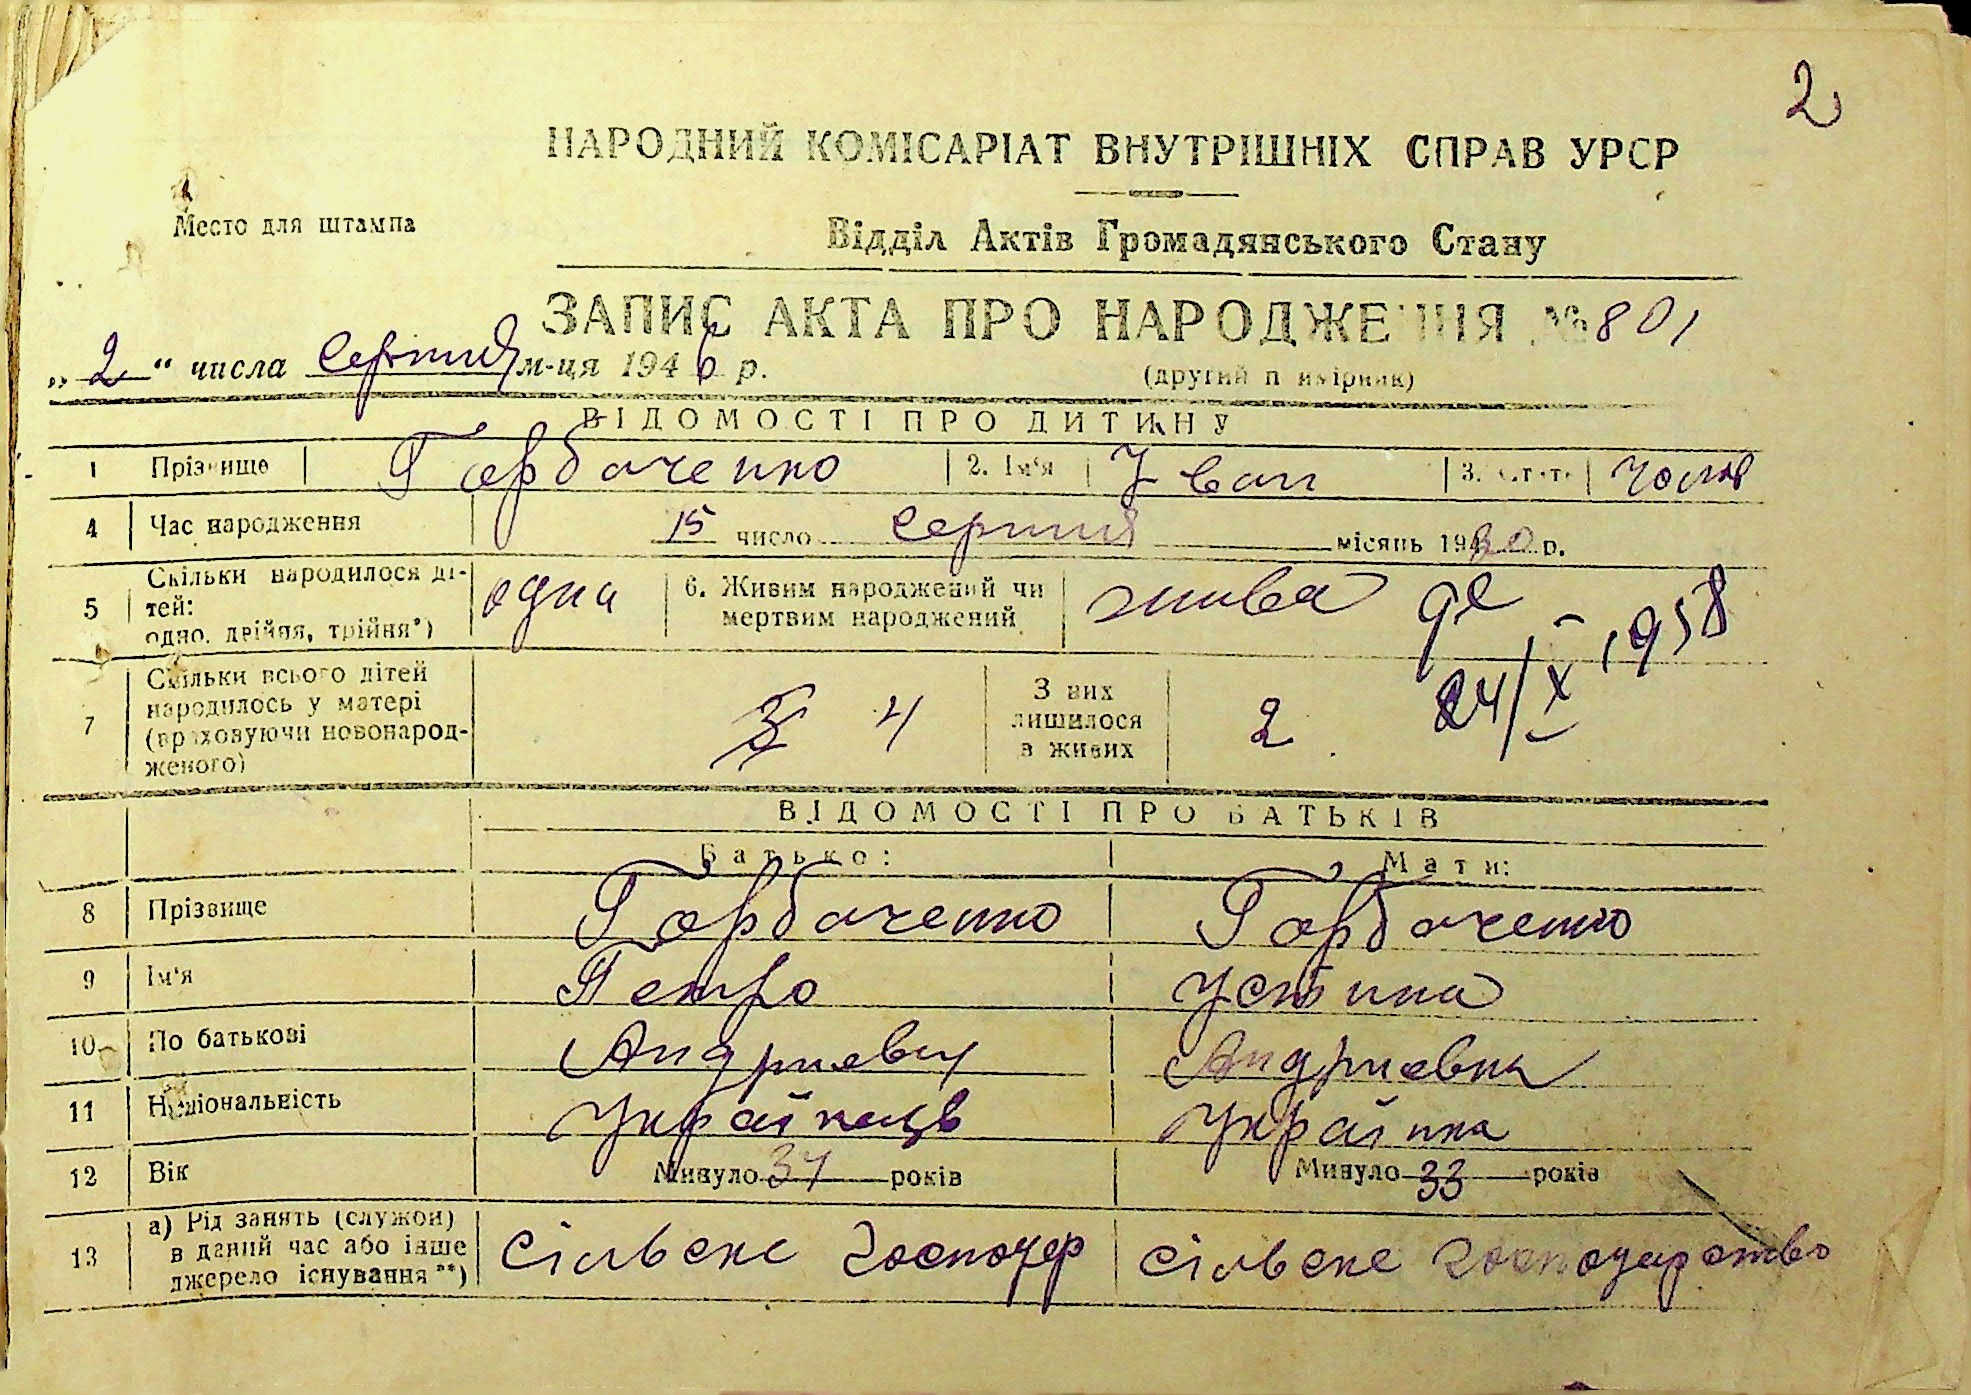 2
НАРОДНИЙ КОМІСАРІАТ ВНУТРІШНІХ СПРАВ УРСР
Место для штампа
Відділ Актів Громадянського Стану
ЗАПИС АКТА ПРО НАРОДЖЕННЯ № 801
„2“ числа серпня м-ця 1946 р.
(другий примірник)
ВІДОМОСТІ ПРО ДИТИНУ
1 Прізвище Горбаченко 2. Ім'я Іван 3. Стать чолов
4 Час народження 15 число серпня місяць 1930 р.
5 Скільки народилося дітей: одно, двійня, трійня*) одна 6. Живим народжений чи мертвим народжений жива
24/X 1958
7 Скільки всього дітей народилось у матері (враховуючи новонародженого) 4 З них лишилося в живих 2
ВІДОМОСТІ ПРО БАТЬКІВ
Батько: Мати:
8 Прізвище Горбаченко Горбаченко
9 Ім'я Петро Устина
10 По батькові Андриевич Андриевна
11 Національність Українець Українка
12 Вік Минуло 37 років Минуло 33 років
13 а) Рід занять (служби) в даний час або інше джерело існування**) сільське господар сільське господарство